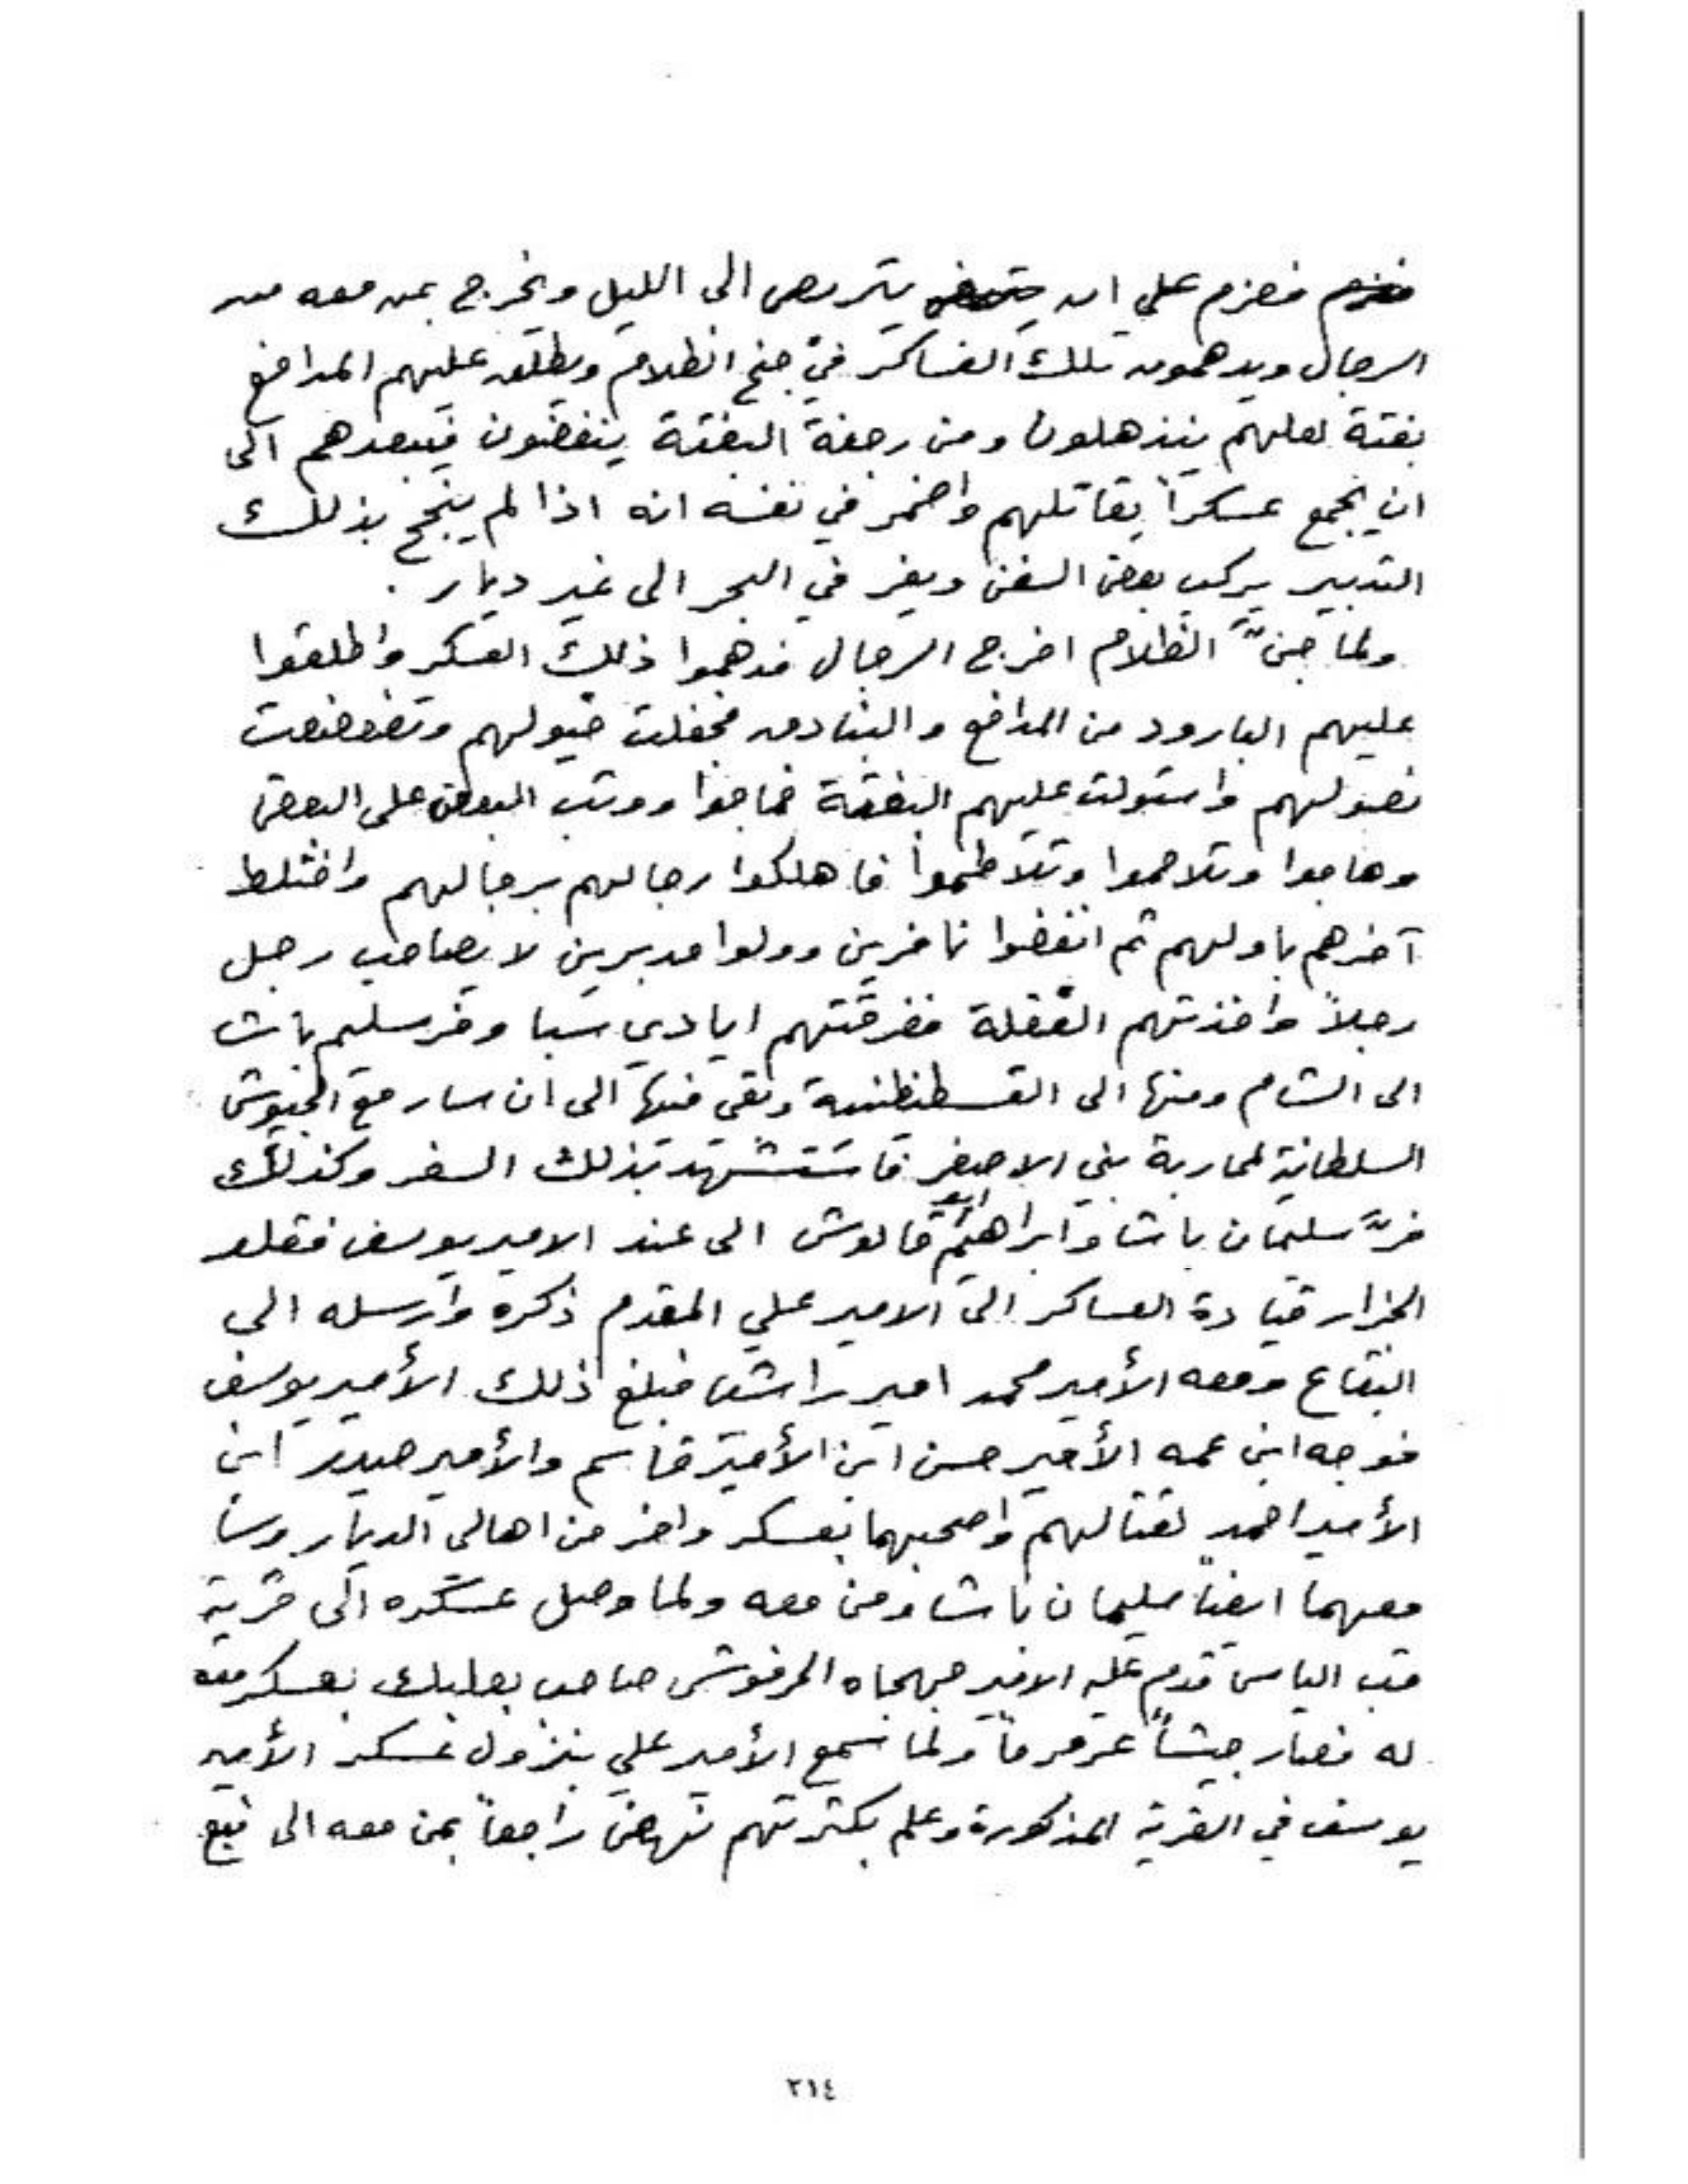 فعزم على ان يتربص الى الليل ويخرج بمن معه من
الرجال ويدهمون تلك العساكر في جنح الظلام ويطلق عليهم المدافع
بغتة لعلهم ينذهلون ومن رجفة البغتة ينفضون فيبعدهم الى
ان يجمع عسكراً يقاتلهم واضمر في نفسه انه اذا لم ينجح بذلك
التدبير يركب بعض السفن ويفر في البحر الى غير ديار .
ولما جنّ الظلام اخرج الرجال فدهموا ذلك العسكر واطلقوا
عليهم البارود من المدافع والبنادق فجفلت خيولهم وتضعضعت
نصولهم واستولت عليهم البغتة فماجوا ووثب البعض على البعض
وهاجوا وتلاحموا وتلاطموا فاهلكوا رجالهم برجالهم واختلط
آخرهم باولهم ثم انفضوا نافرين وولوا مدبرين لا يصاحب رجل
رجلاً واخذتهم الغفلة ففرقتهم ايادي سبا وفر سليم باشا
الى الشام ومنها الى القسطنطنية وبقى فيها الى ان سار مع الجيوش
السلطانية لمحاربة بني الاصفر فاستشهد بذلك السفر وكذلك
فرّ سليمان باشا وابراهيم ابو قالوش الى عند الامير يوسف فقلد
الجزار قيادة العساكر الى الامير علي المقدم ذكره وارسله الى
البقاع ومعه الأمير محمد امير راشيا فبلغ ذلك الأمير يوسف
فوجه ابن عمه الأمير حسن ابن الأمير قاسم والأمير حيدر ابن
الأمير احمد لقتالهم واصحبهما بعسكر وافر من اهالي الديار وسا
معهما ايضاً سليمان باشا ومن معه ولما وصل عسكره الى قرية
قب الياس قدم عليه الامير جهجاه الحرفوش صاحب بعلبك بعسكر معه
له فصار جيشاً عرمرماً ولما سمع الأمير علي بنزول عسكر الأمير
يوسف في القرية المذكورة وعلم بكثرتهم نهض راجعاً بمن معه الى نبع
٢١٤